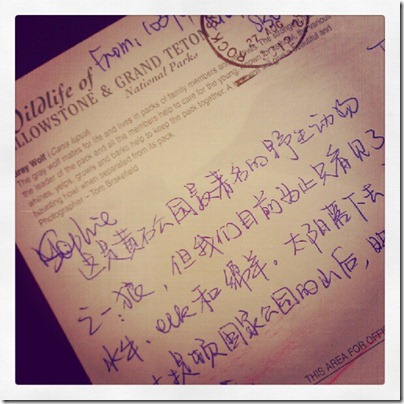 From: 100,
ROCK
27
Wildlife of
YELLOWSTONE & GRAND TETON
National Parks
Gray Wolf (Canis lupus)
The gray wolf mates for life and lives in packs of family members
the leader of the pack and all the members help to care for the young.
whines, yelps, growls and barks help to keep the pack together. A
haunting howl when separated from its pack.
Photographer – Tom Brakefield
Sophie
这是黄石公园最著名的野生动物
之一：狼，但我们目前为止只看见了
水牛、elk和绵羊。太阳落下去
大提顿国家公园的山后，
THIS AREA FOR OFFI